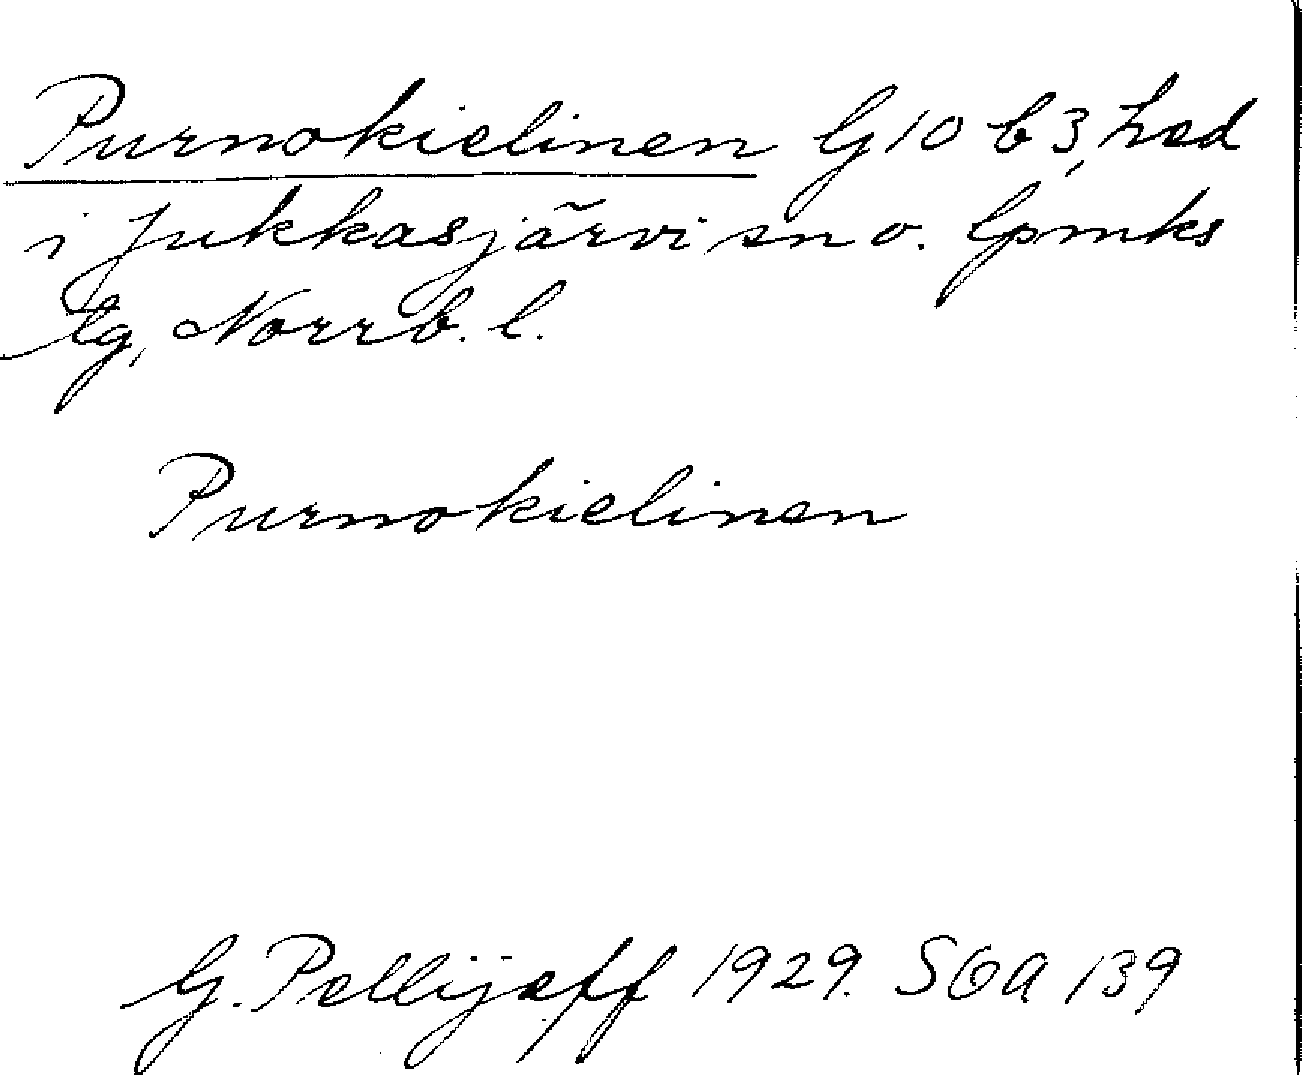 Purnokielinen G10 b 3, hed
i Jukkasjärvi sn o. lpmks
tg, Norrb. l.
Purnokielinen
G. Pellijeff 1929. SOA 139